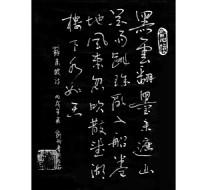 黑雲翻墨未遮山
白雨跳珠亂入船卷
地風來忽吹散望湖
樓下水如天
蘇東坡詩